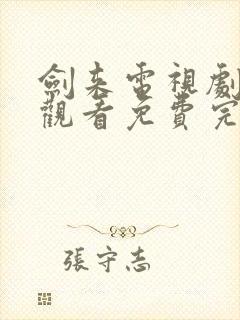 劍來電視劇
觀看免費完
張守志